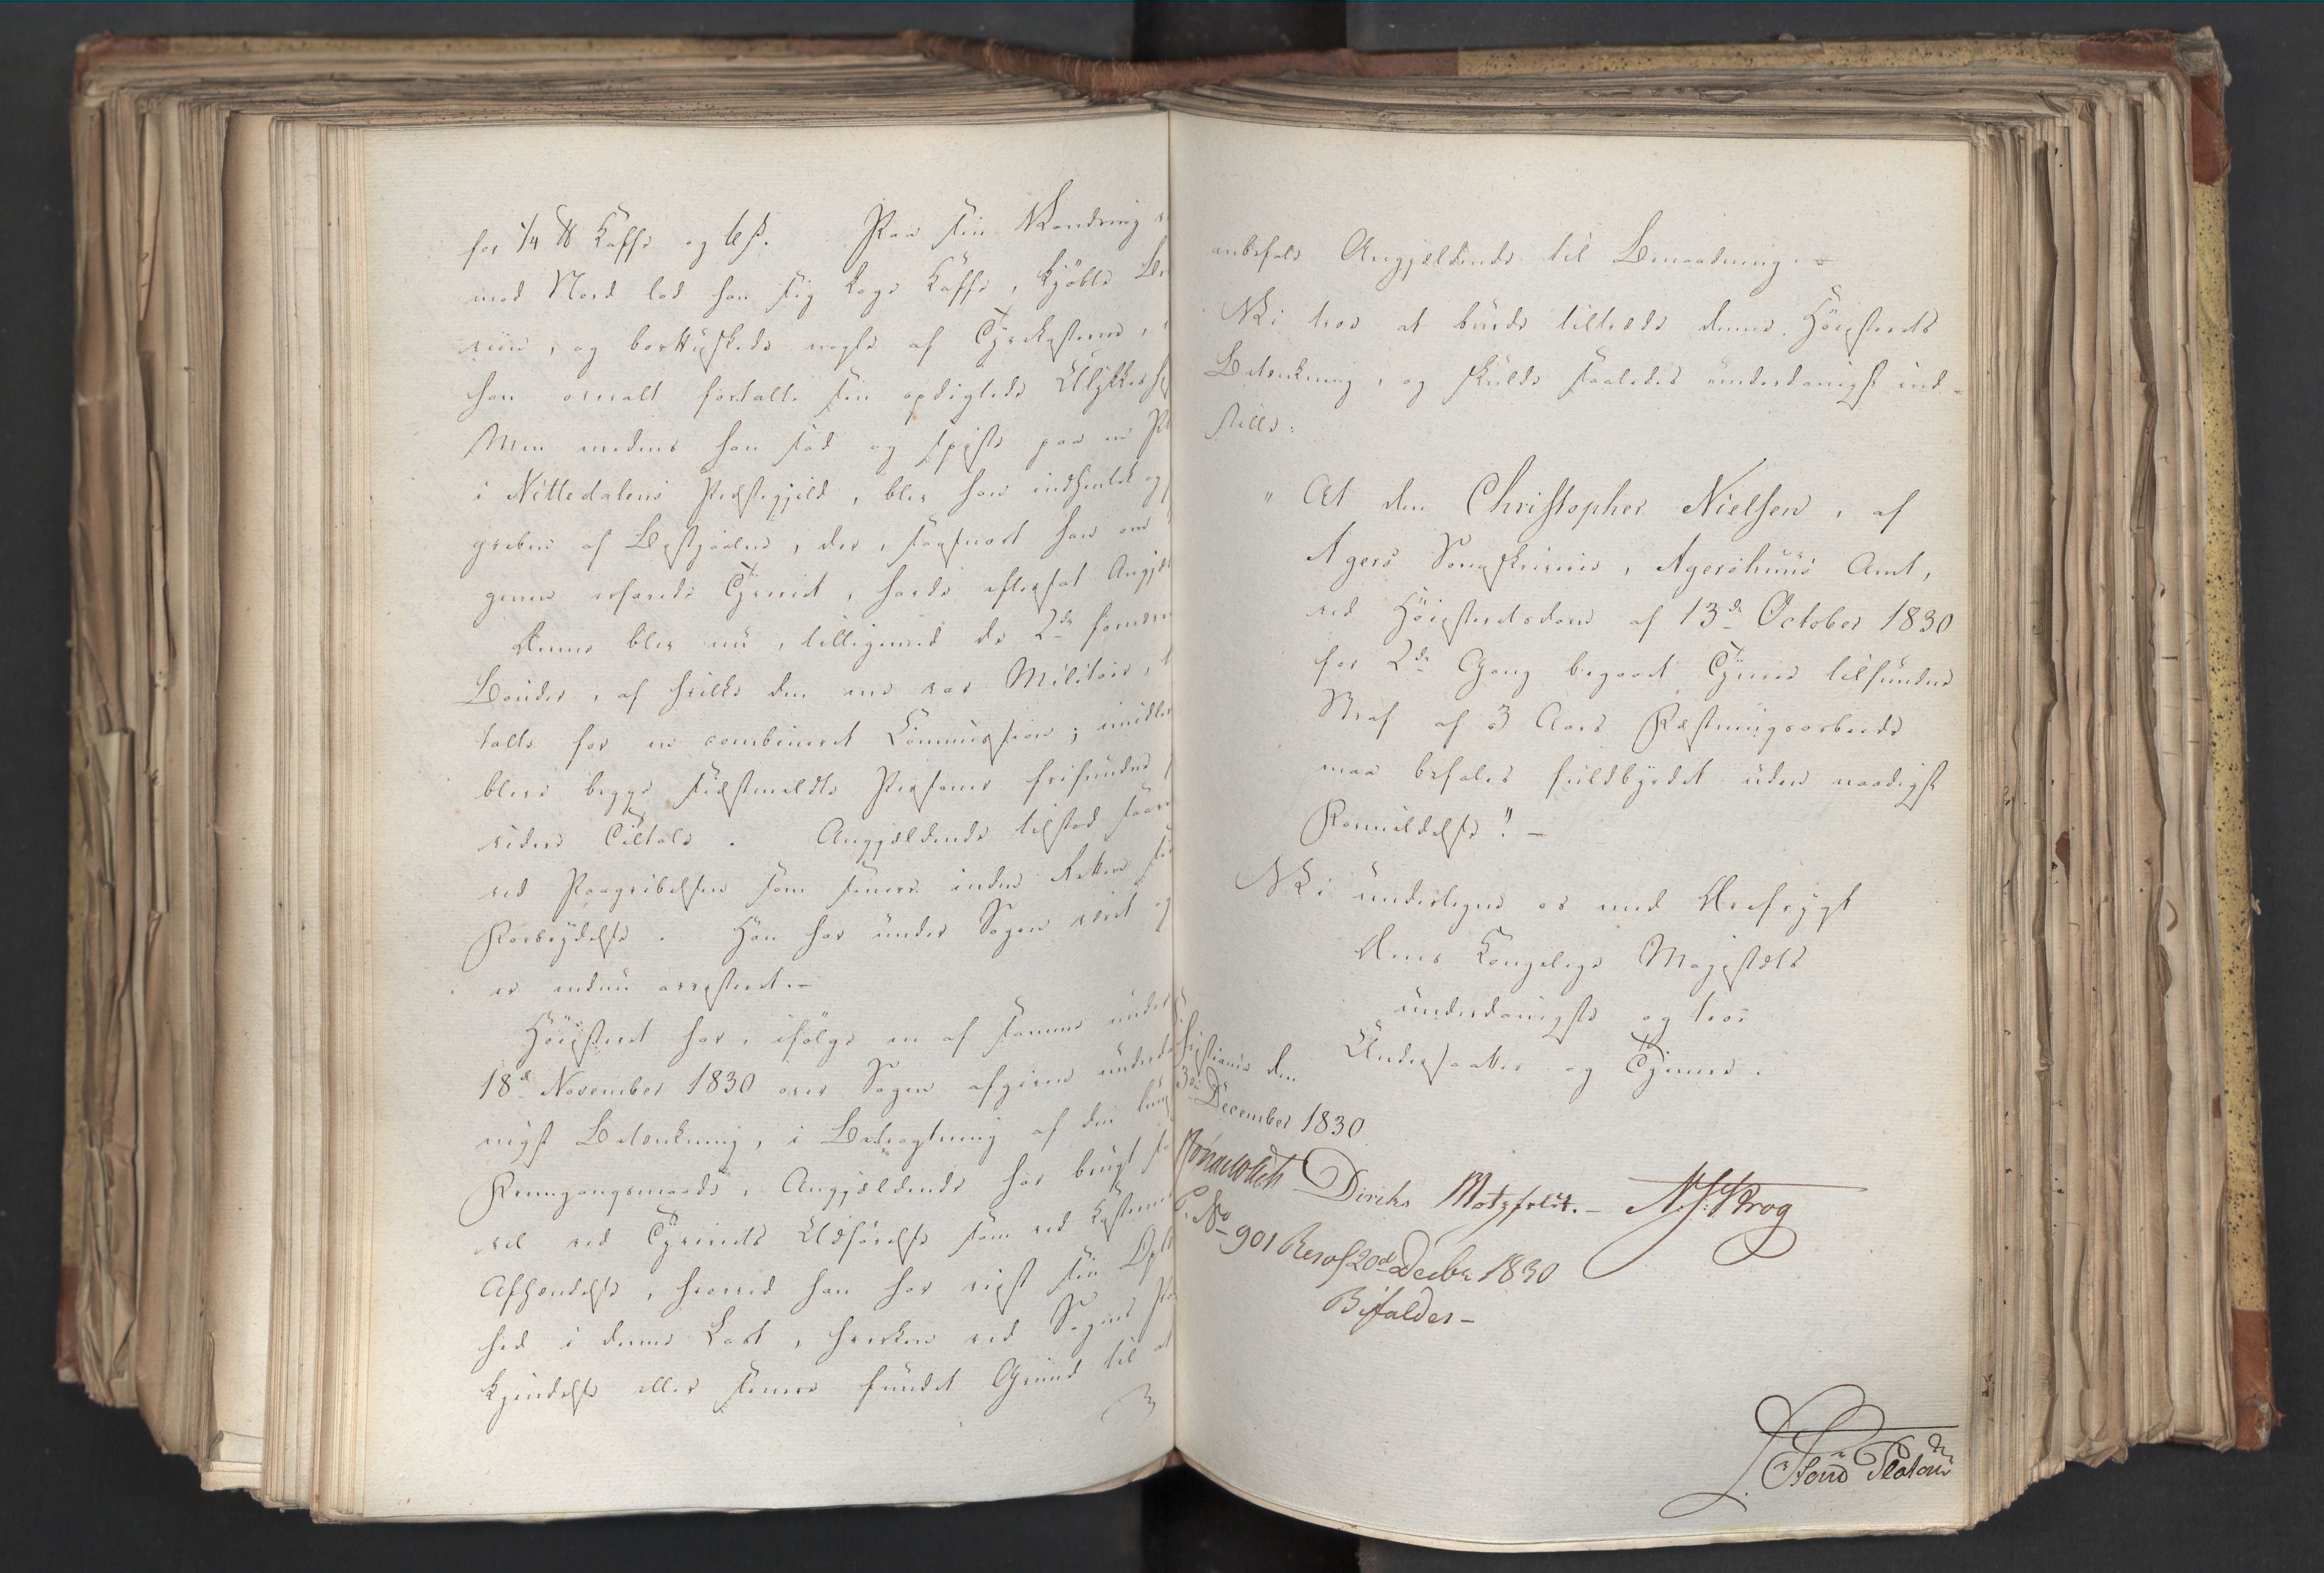 for 1/4 ℔ Kaffe og 6 ß. Paa sin Vandring
mod Nord lod han sig koge Kaffe, kjøbte
viin, og borttuskede nogle af Tyvekosterne,
han overalt fortalte sin opdigtede
Men medens han sad og spiste paa en
i Nittedalens Præstegjeld, blev han indhentet og
greben af Bestjaalne, der, saasnart han om
genen erfarede Tyveriet, havde eftersat
Denne blev nu, tilligemed de 2de
Bønder, af hvilke den ene var Militair,
talte for en combineret Commission; imidler
bleve begge sidstmeldte Personer frifundne
videre Tiltale. Angjældende tilstod
ved Paagribelsen som senere inden Retten
Forbrydelse. Han har under Sagen været og
er endnu arresteret.-
Höiesteret har, ifølge en af samme under
18de November 1830 over Sagen afgiven underda
nigst Betænkning, i Betragtning af den
Fremgangsmaade, Angjældende har brugt
vel ved Tyveriets Udførelse som ved Kosternes
Afhændelse, hvorved han har viist sin
hed i denne Last, hverken ved Sagens
kjendelse eller senere fundet Grund til at
anbefale Angjældende til Benaadning.
Vi troe at burde tiltræde denne Höiesterets
Betænkning, og skulde saaledes underdanigst ind-
stille:
" At den Christopher Nielsen, af
Agers Sorenskriverie, Agershuus Amt,
ved Höiesteretsdom af 13de October 1830
for 2de Gang begaaet Tyverie tilfundne
Straf af 3 Aars Fæstningsarbeide
maa befales fuldbyrdet uden naadigst
Formildelse". -
Vi undertegne os med Ærefrygt
Deres Kongelige Majestæts
underdanigste og troe
Undersaatter og Tjenere.
Christiania den
December 1830
Diriks Motzfeldt. - Krog
P. No 901 Resol 20de Decbr 1830
Bifaldes -